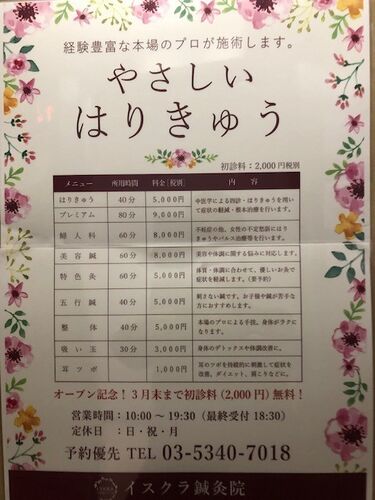 経験豊富な本場のプロが施術します。
やさしい
はりきゅう
初診料：2,000円税別
メニュー 所用時間 料金[税別] 内容
はりきゅう 40分 5,000円 中医学による四診・はりきゅうを用いて症状の軽減・根本治療を行います。
プレミアム 80分 9,000円
婦人科 60分 8,000円 不妊症の他、女性の不定愁訴にはりきゅうやパルス治療等を行います。
美容鍼 60分 8,000円 美容や体調に関する悩みに対応します。
特色灸 60分 5,000円 体質・体調に合わせて、優しいお灸で症状を軽減します。（要予約）
五行鍼 40分 5,000円 刺さない鍼です。お子様や鍼が苦手な方におすすめします。
整体 40分 5,000円 本場のプロによる手技。身体がラクになります。
吸い玉 30分 3,000円 身体のデトックスや体調改善に。
耳ツボ 1,000円 耳のツボを持続的に刺激して症状を改善。ダイエット、肩こりなどに。
オープン記念！3月末まで初診料（2,000円）無料！
営業時間：10:00〜19:30（最終受付 18:30）
定休日：日・祝・月
予約優先 TEL 03-5340-7018
イスクラ鍼灸院